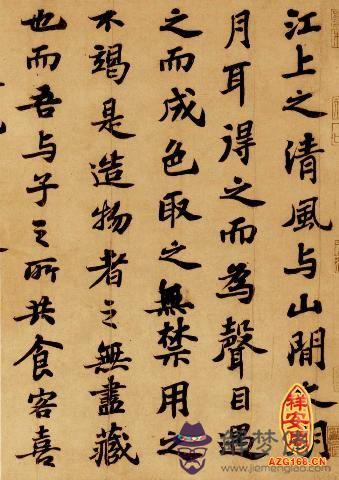 江上之清風与山間之明
月耳得之而為聲目遇
之而成色取之無禁用之
不竭是造物者之無盡藏
也而吾与子之所共食客喜
祥安阁
AZG166.CN